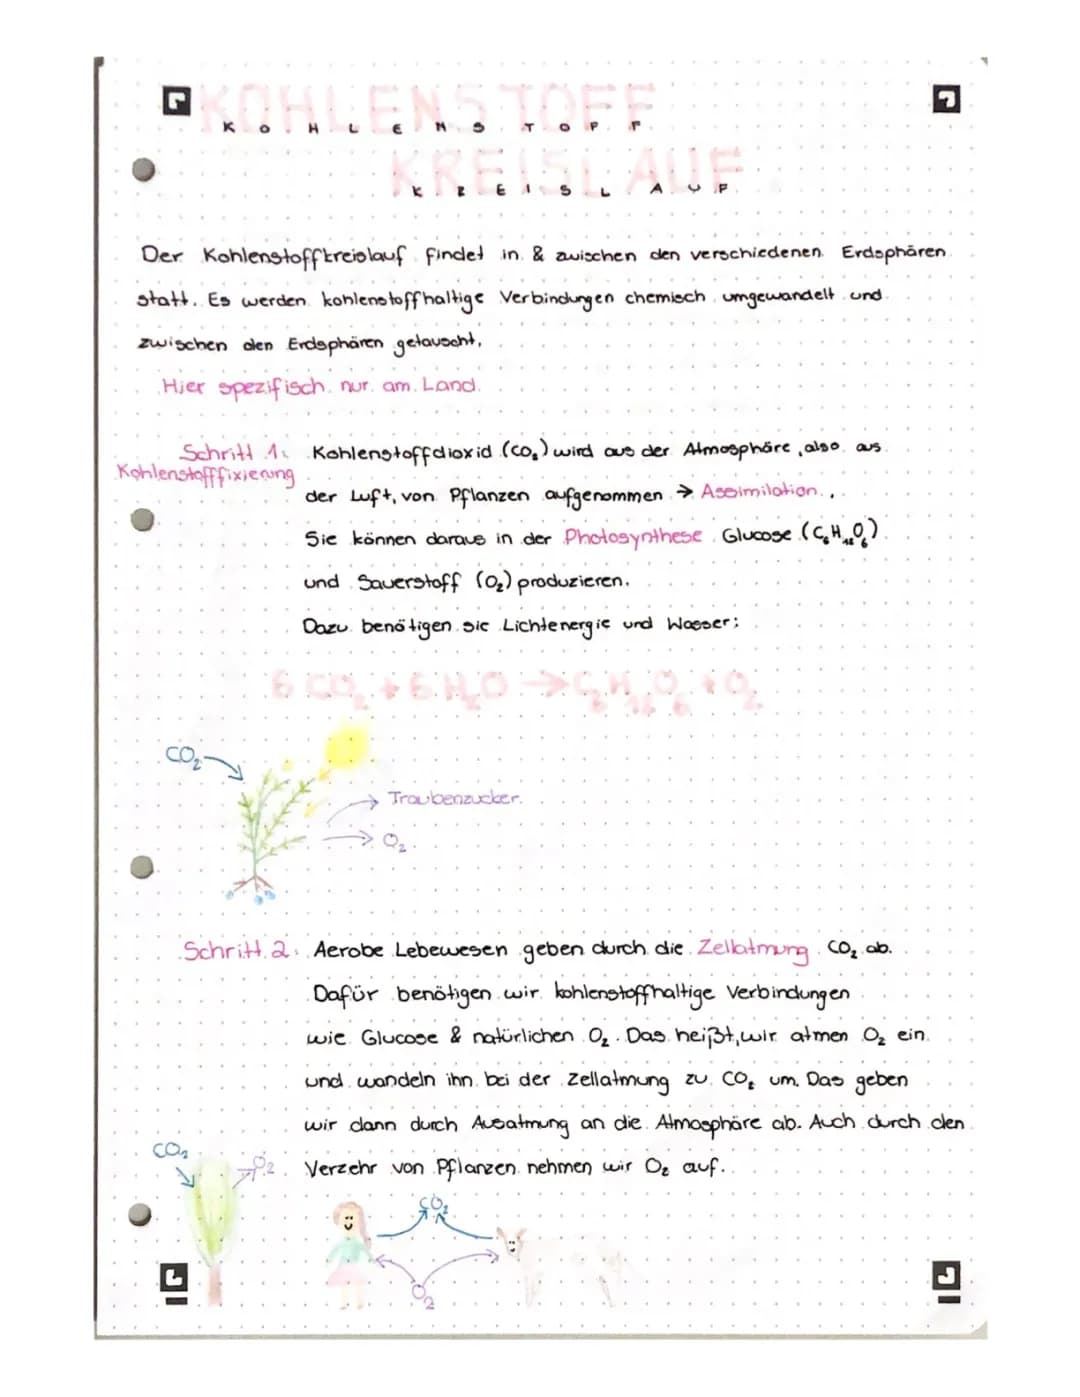 KOHLENSTOFF
KOHLENSTOFF
KREISLAUF
KREISLAUF
Der Kohlenstoffkreislauf findet in & zwischen den verschiedenen Erdsphären
statt. Es werden kohlenstoffhaltige Verbindungen chemisch umgewandelt und
zwischen den Erdsphären getauscht.
Hier spezifisch nur am Land.
Schritt 1: Kohlenstoffdioxid (CO₂) wird aus der Atmosphäre, also aus
Kohlenstofffixierung
der Luft, von Pflanzen aufgenommen → Assimilation.
Sie können daraus in der Photosynthese Glucose (C₆H₁₂O₆)
und Sauerstoff (O₂) produzieren.
Dazu benötigen sie Lichtenergie und Wasser:
6 CO₂ + 6 H₂O → C₆H₁₂O₆ + O₂
CO₂
Traubenzucker
O₂
Schritt 2: Aerobe Lebewesen geben durch die Zellatmung CO₂ ab.
Dafür benötigen wir kohlenstoffhaltige Verbindungen
wie Glucose & natürlichen O₂. Das heißt, wir atmen O₂ ein
und wandeln ihn bei der Zellatmung zu CO₂ um. Das geben
wir dann durch Ausatmung an die Atmosphäre ab. Auch durch den
Verzehr von Pflanzen nehmen wir O₂ auf.
CO₂
O₂
CO₂
O₂